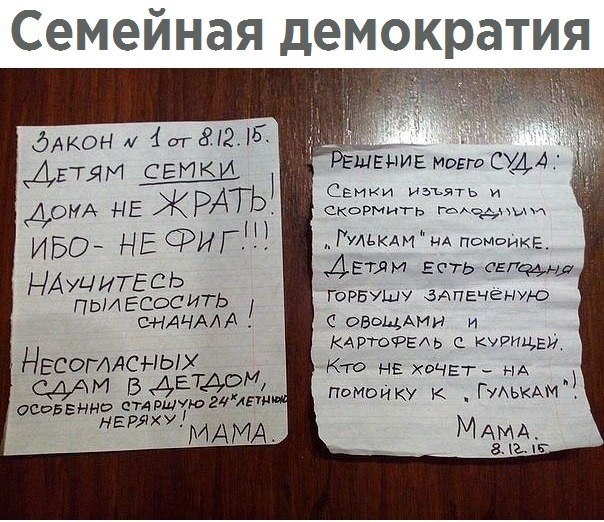 Семейная демократия
ЗАКОН № 1 от 8.12.15.
ДЕТЯМ СЕМКИ
ДОМА НЕ ЖРАТЬ!
ИБО - НЕ ФИГ!!!
НАУЧИТЕСЬ
ПЫЛЕСОСИТЬ
СНАЧАЛА!
НЕСОГЛАСНЫХ
СДАМ В ДЕТДОМ,
ОСОБЕННО СТАРШУЮ 24х ЛЕТНЮЮ
НЕРЯХУ!
МАМА.
РЕШЕНИЕ МОЕГО СУДА:
СЕМКИ ИЗЪЯТЬ И
СКОРМИТЬ ГОЛОДНЫМ
„ГУЛЬКАМ" НА ПОМОЙКЕ.
ДЕТЯМ ЕСТЬ СЕГОДНЯ
ГОРБУШУ ЗАПЕЧЁНУЮ
С ОВОЩАМИ И
КАРТОФЕЛЬ С КУРИЦЕЙ.
КТО НЕ ХОЧЕТ - НА
ПОМОЙКУ К „ГУЛЬКАМ"!
МАМА.
8.12.15